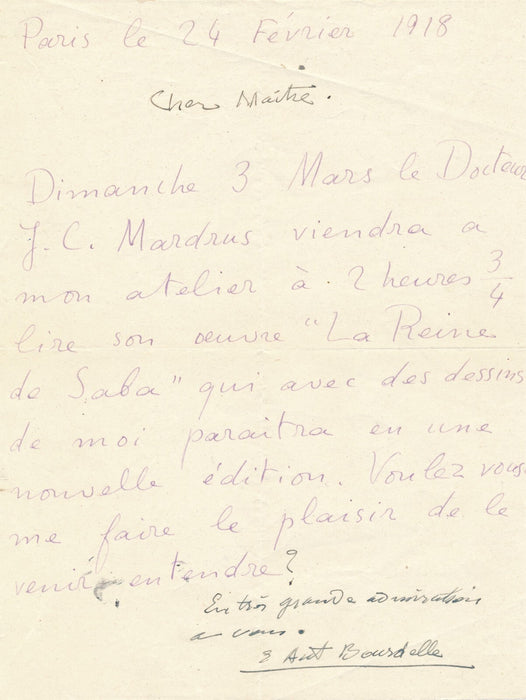 Paris le 24 Février 1918
Cher Maître.
Dimanche 3 Mars le Docteur
J. C. Mardrus viendra a
mon atelier à 2 heures 3/4
lire son œuvre "La Reine
de Saba" qui avec des dessins
de moi paraitra en une
nouvelle édition. Voulez vous
me faire le plaisir de le
venir entendre?
En très grande admiration
a vous.
Ant Bourdelle